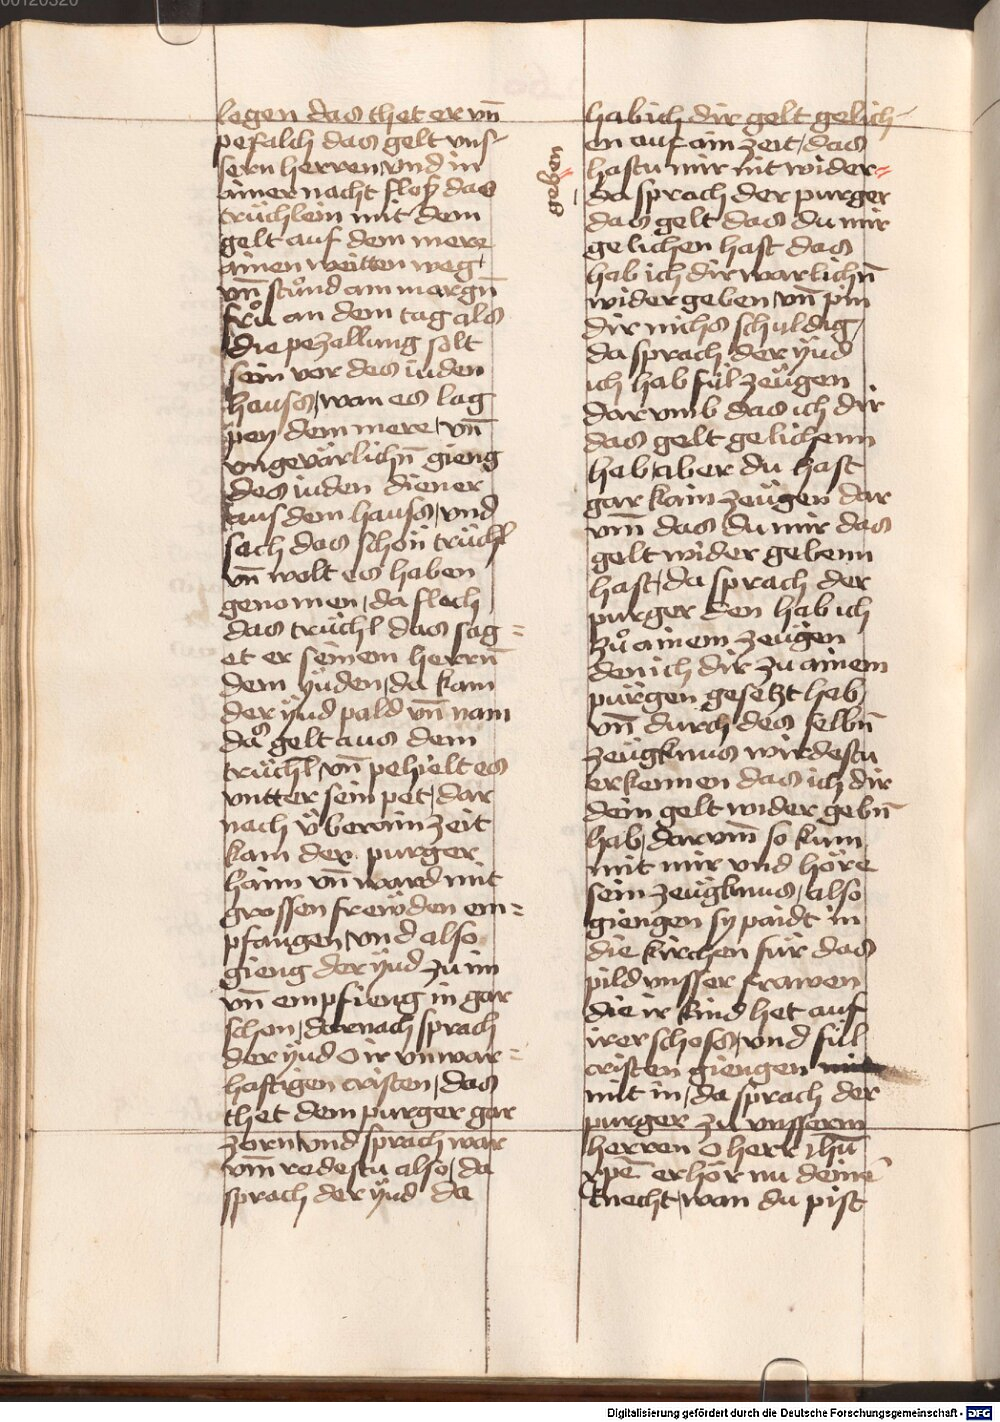 00120320
legen das thet er vn̄
pefalch das gelt vns-
sern herren vnd in
ainer nacht floß das
trüchlein mit dem
gelt auf dem mere
ainen weitten weg,
vn̄ stůnd am morgn̄
frů an dem tag als
die pezallung solt
sein vor des iuden
hauss, wan es lag
pey dem mere, vn̄
vngevärlichn̄ gieng
des iuden diener
aus dem hauss, vnd
sach das schön trüchl
vn̄ wolt es haben
genomen, da floch
das trüchl das sag=
et er seinem herrn̄
dem ÿuden, da kam
der ÿud pald vn̄ nam
das gelt aus dem
trüchl, vn̄ pehielt es
vntter sein pet, dar
nach v̈ber ain zeit
kam der purger
haim vn̄ ward mit
grossen freẅden em=
pfangen, vnd also
gieng der ÿud zu im
vn̄ empfieng in gar
schon, dornach sprach
der ÿud O ir vnwar=
haftigen cristen, das
thet dem purger gar
zorn, vnd sprach war
vm̄ redestu also, da
sprach der ÿud da
hab ich dir gelt gelich-
en auf ain zeit, das
hastu mir nit wider=
geben
da sprach der purger
das gelt das du mir
gelichen hast das
hab ich dir warlichn̄
wider geben, vn̄ pin
dir nichs schuldig,
da sprach der ÿud
ich hab fül zeügen
dar vmb das ich dir
das gelt gelichenn
hab, aber du hast
gar kain zeügen dar
vm̄ das du mir das
gelt wider gebenn
hast, da sprach der
purger den hab ich
zů ainem zeügen
den ich dir zu ainem
pürgen gesetzt hab,
vn̄ durch des selbn̄
zeügknus wirdestu
erkennen das ich dir
dein gelt wider gebn̄
hab, darvm̄ so kum
mit mir vnd höre
sein zeügknus, also
giengen sy paidt in
die kirchen für das
pild vnsser frawen
die ir kind het auf
irer schoss, vnd fül
cristen giengen
mit in, da sprach der
purger zu vnsserm
herren O herr ihū
xp̄e erhör nu deinē
knecht, wan du pist
Digitalisierung gefördert durch die Deutsche Forschungsgemeinschaft - DFG